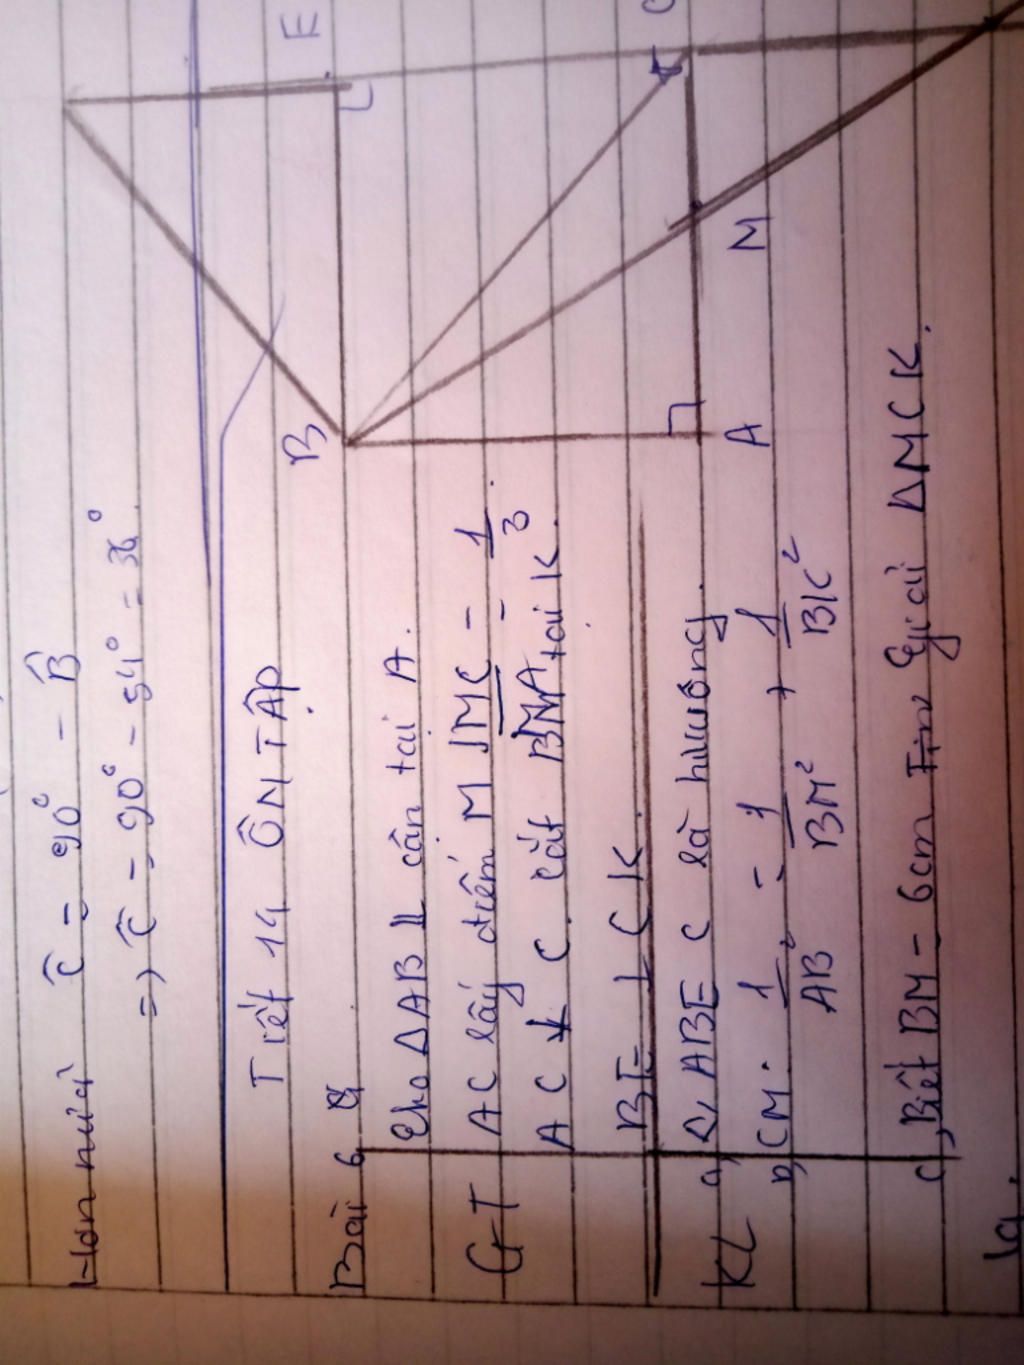 Hơn nữa Ĉ = 90° - B̂
=) Ĉ = 90° - 54° = 36°
Tiết 19 ÔN TẬP
Bài 6
GT
Cho ΔAB cân tại A.
AC lấy điểm M MC = 1/3.
AC ↓ C. cắt BM tại K
BE ⊥ CK.
KL
a, ABEC là h.vuông.
b, CM. 1/AB² = 1/BM² + 1/BK²
c, Biết BM = 6cm giải ΔMCK.
B
E
C
M
A